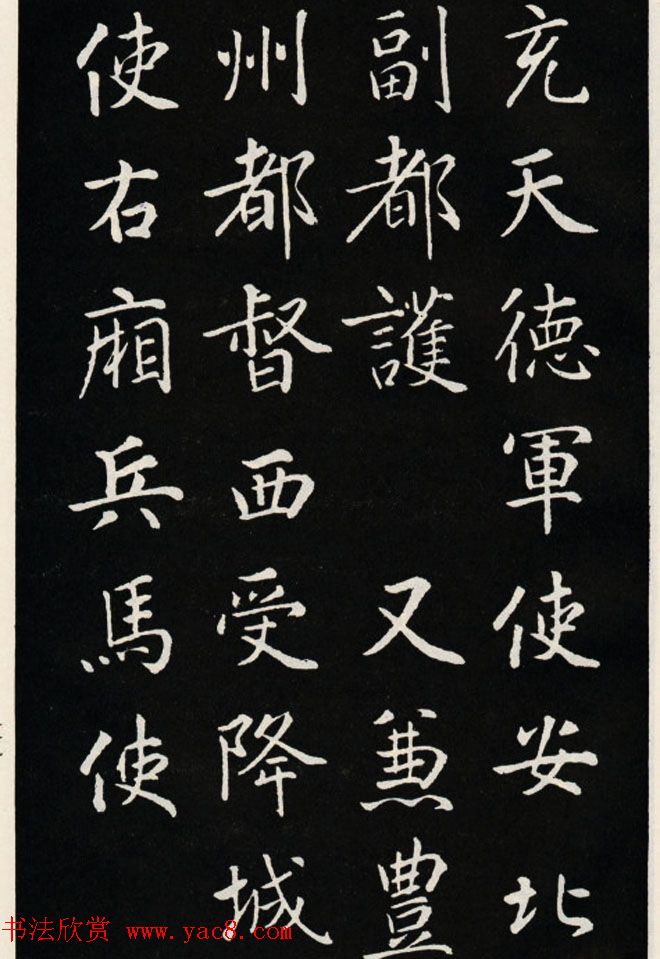 充天德軍使安北
副都護 又兼豊
州都督西受降城
使右廂兵馬使
书法欣赏 www.yac8.com